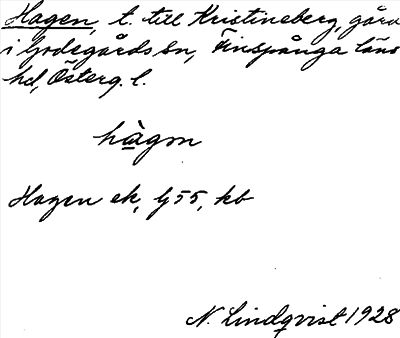 Hagen, t. till Kristineberg, gård
i Godegårds sn, Finspånga läns
hd, Österg. l.
hàgen
Hagen ek, G 55, kb
N. Lindqvist 1928